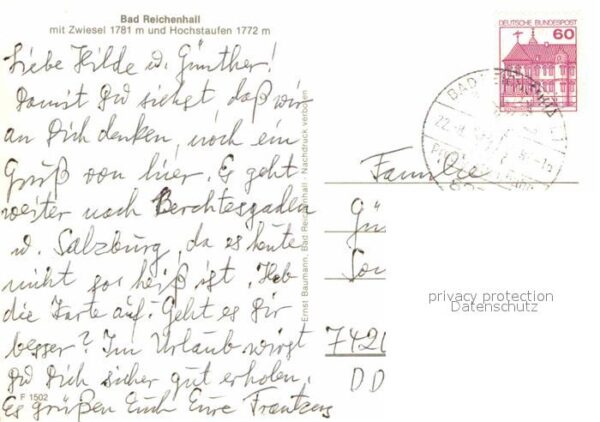 Bad Reichenhall
mit Zwiesel 1781 m und Hochstaufen 1772 m
Liebe Hilde u. Günther!
Damit Du siehst daß wir
an Dich denken, noch ein
Gruß von hier. Es geht
weiter nach Berchtesgaden
u. Salzburg, da es heute
nicht so heiß ist. Heb
die Karte auf. Geht es Dir
besser? Im Urlaub wirst
Du Dich sicher gut erholen.
Es grüßen Euch Eure
F 1502
Ernst Baumann, Bad Reichenhall - Nachdruck verboten
DEUTSCHE BUNDESPOST
60
BAD
Familie
Gü
So
742
DD
privacy protection
Datenschutz